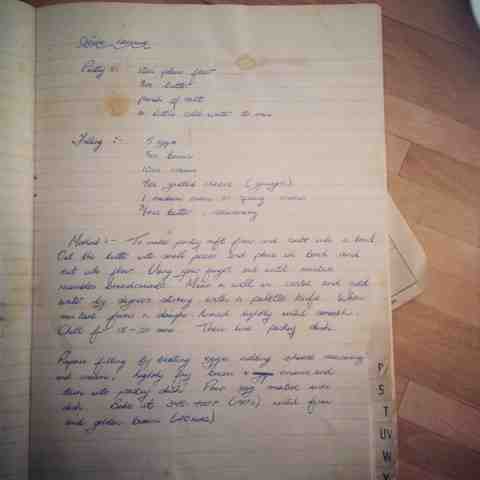 Quiche Lorraine
Pastry :- 10oz plain flour
5oz butter
pinch of salt
a little cold water to mix
Filling :- 5 eggs
bacon
10oz cream
4oz grated cheese (gruyere)
1 medium onion or spring onions
butter, seasoning
Method :- To make pastry sift flour and salt into a bowl.
Cut the butter into small pieces and place in bowl and
rub into flour. Using your finger ends until mixture
resembles breadcrumbs. Make a well in centre and add
water by degrees stirring with a palette knife. When
mixture forms a dough knead lightly until smooth.
Chill for 15-20 mins. Then line pastry dish.
Prepare filling by beating eggs adding cheese seasoning
and cream. Lightly fry bacon & onions and
then into pastry dish. Pour egg mixture into
dish. Bake at until firm
and golden brown
P
S
T
UV
W